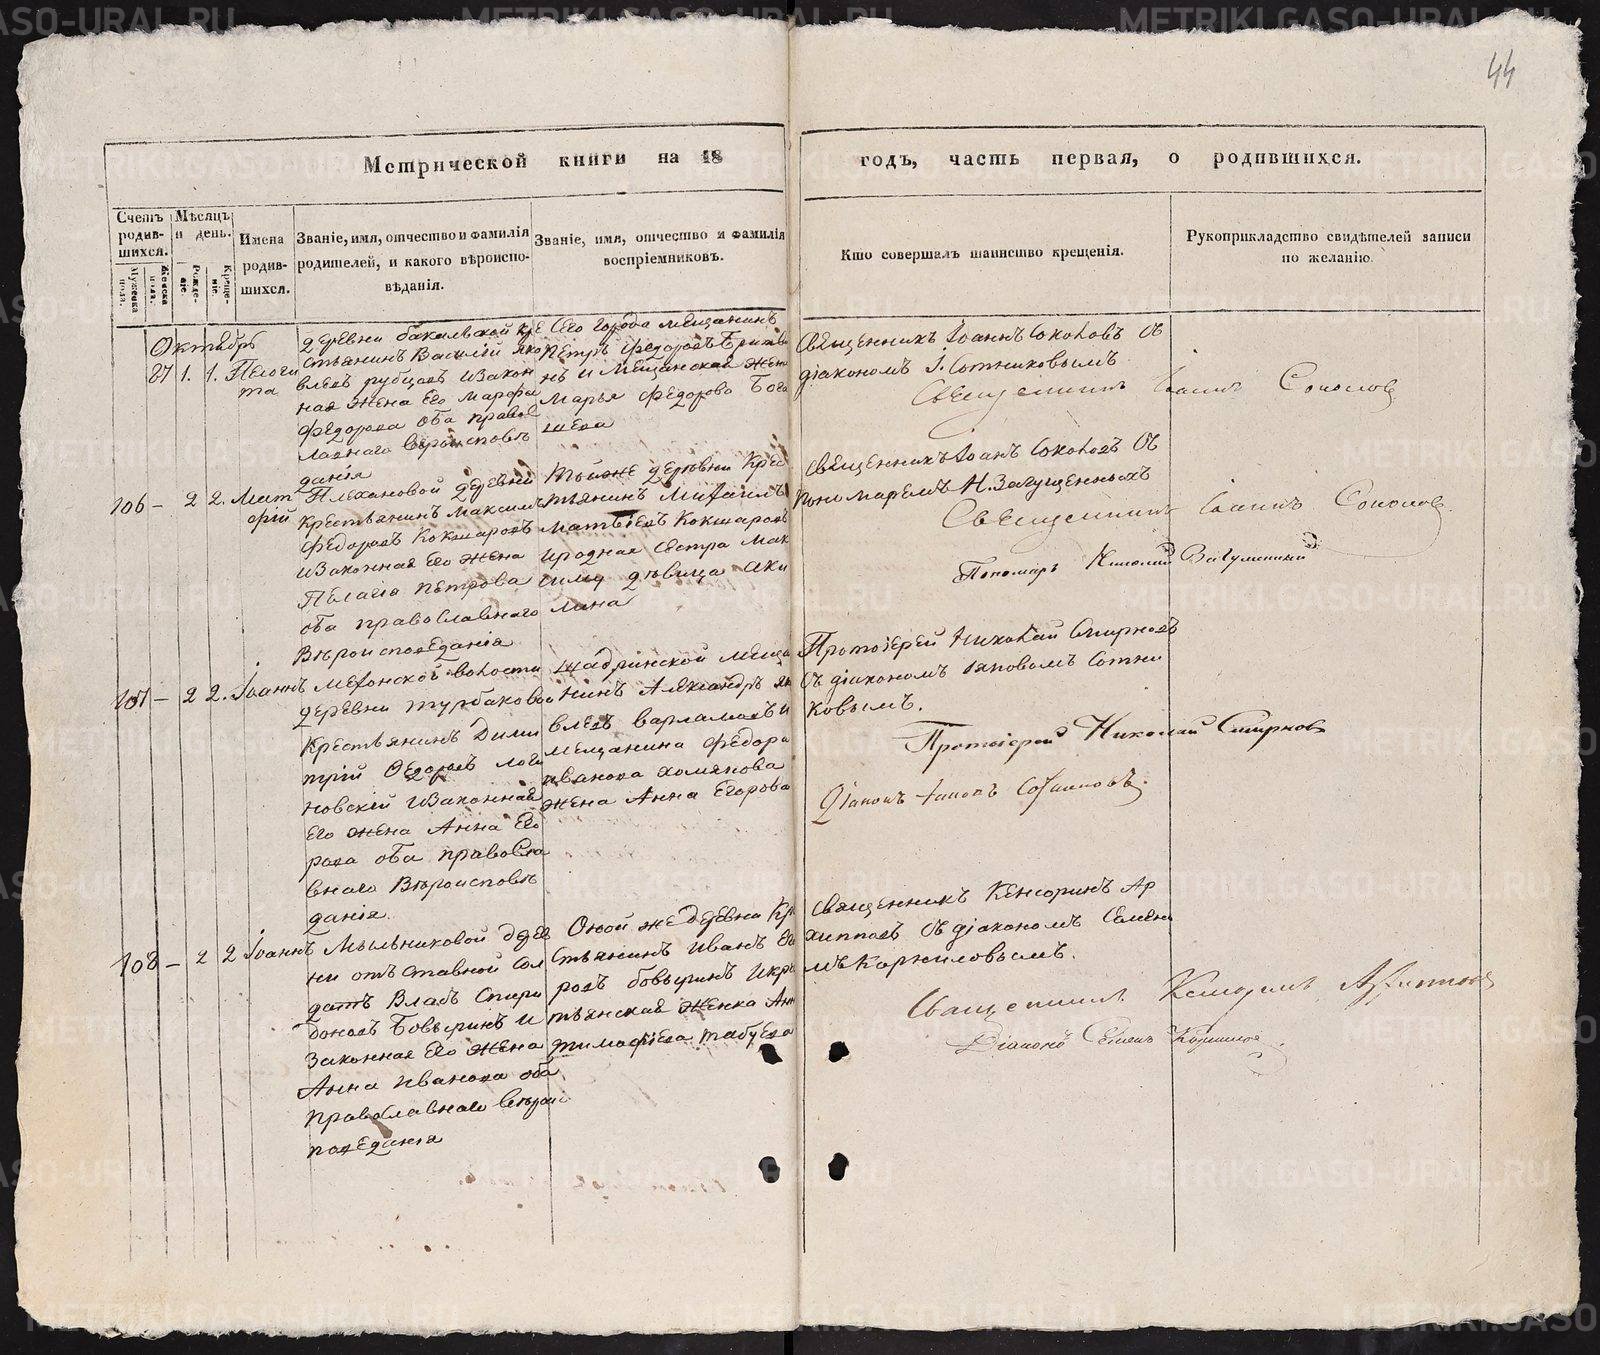 44
Метрической книги на 18 годъ, часть первая, о родившихся.
Счетъ родив-шихся.
Мужеска пола.
Женска пола.
Мѣсяцъ и день.
Рожде-ніе.
Креще-ніе.
Имена родив-шихся.
Званіе, имя, отчество и фамилія родителей, и какого вѣроиспо-вѣданія.
Званіе, имя, отчество и фамилія воспріемниковъ.
Кто совершалъ таинство крещенія.
Рукоприкладство свидѣтелей записи по желанію.
Октябрь
87 1. 1. Пелоги
та
деревни бакальской кре
стьянинъ Василій яко
влевъ рубцовъ изакон
ная жена Его Марфа
Федорова оба право
лавнаго вероисповѣ
данія
Сего города мещанинъ
Петръ Федоровъ
нъ и Мещанская жена
Марья Федорова Бога
шева
Священникъ Іоаннъ Соколовъ съ
діакономъ І. Сотниковымъ
Священникъ Іоаннъ Соколов
106 – 2 2. Мат
фій
Плехановой деревни
крестьянинъ Максимъ
Федоровъ Кокшаровъ
изаконная Его жена
Пелагія петрова
оба православнаго
Вѣроисповеданія
Тойже деревни Крес
тьянинъ Михаилъ
Матвіевъ Кокшаровъ
иродная сестра Мак
сима девица аки
лина
Священникъ Іоанъ Соколовъ Съ
пономаремъ Н. Загуменныхъ
Священникъ Іоаннъ Соколов.
Пономарь Николай Загуменный
107 – 2 2. Іоаннъ
Мехонской волости
деревни турбаковой
Крестьянинъ Дими
трій Федоровъ логи
новской изаконная
Его жена Анна Его
рова оба правосла
внаго Вѣроисповѣ
данія.
шадринской меща
нинъ Александръ як
влевъ варламовъ и
мещанина федора
иванова хомякова
жена Анна Егорова
Протоіерей Николай Смирновъ
съ діакономъ іаковомъ Сотни
ковымъ.
Протоіерей Николай Смирнов
Діаконъ Іаковъ Сотниковъ.
108 – 2 2 Іоаннъ
Мыльниковой дерев
ни отъставной Сол
датъ Власъ Спири
доновъ Бовыринъ и
Законная его жена
Анна иванова оба
православнаго вѣрои
поведанія
Оной же деревни Кре
стьянинъ Иванъ Его
ровъ бовыринъ икре
тьянская женка Анн
тимофіева табуева
Священникъ Кенсоринъ Ар
хиповъ съ діакономъ Семено
мъ Корниловымъ.
Священникъ Кенсоринъ Архиповъ
Діаконъ Семенъ Корнилов